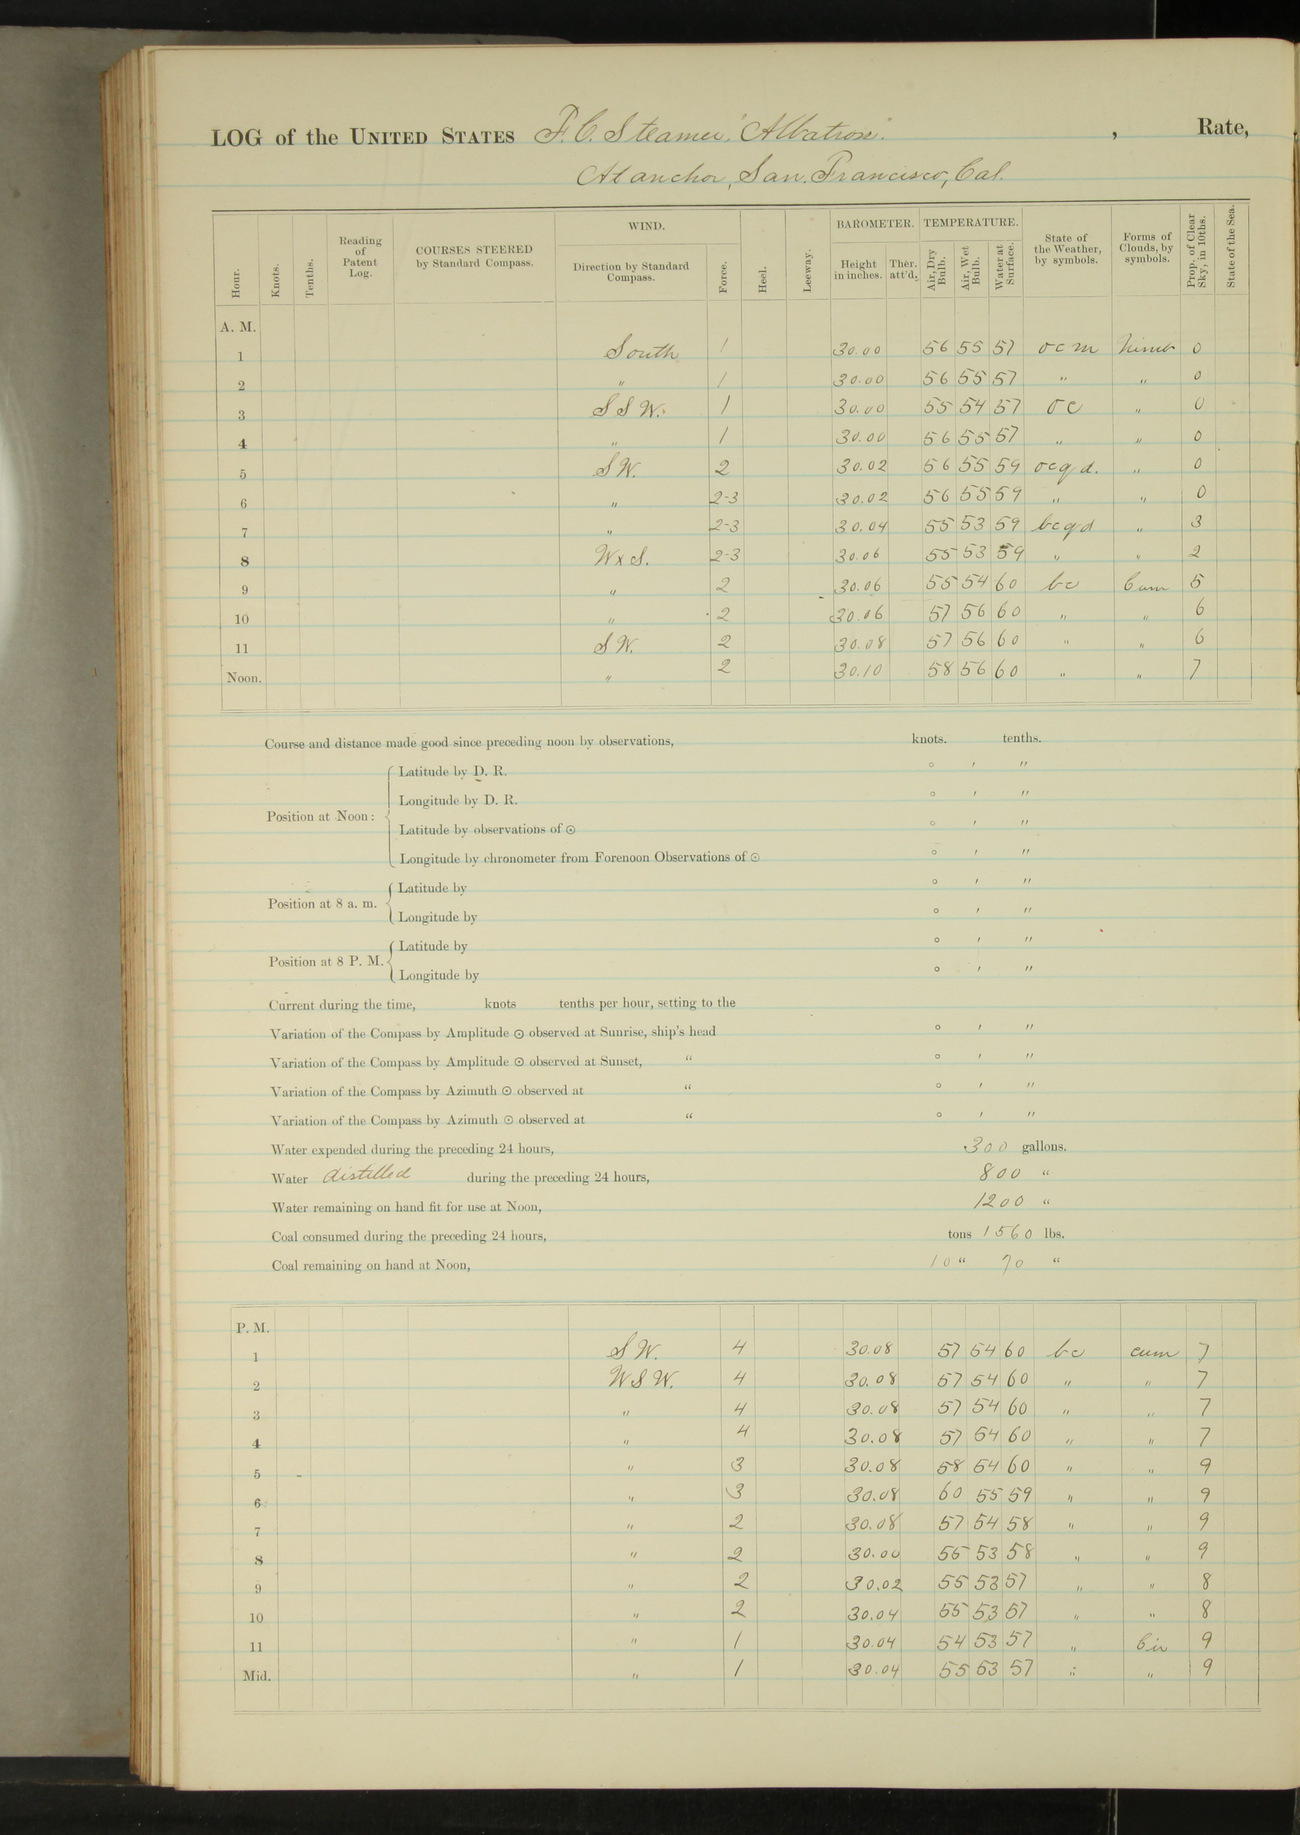 LOG of the UNITED STATES F.C. Steamer "Albatross" , Rate,
At anchor, San Francisco, Cal.
Hour. Knots. Tenths. Reading of Patent Log. COURSES STEERED by Standard Compass. WIND. Direction by Standard Compass. Force. Heel. Leeway. BAROMETER. Height in inches. Ther. att'd. TEMPERATURE. Air, Dry Bulb. Air, Wet Bulb. Water at Surface. State of the Weather, by symbols. Forms of Clouds, by symbols. Prop. of Clear Sky, in 10ths. State of the Sea.
A. M.
1 South 1 30.00 56 55 57 ocm Nimb 0
2 " 1 30.00 56 55 57 " " 0
3 SSW. 1 30.00 55 54 57 oc " 0
4 " 1 30.00 56 55 57 " " 0
5 SW. 2 30.02 56 55 59 ocqd. " 0
6 " 2-3 30.02 56 55 59 " " 0
7 " 2-3 30.04 55 53 59 bcqd " 3
8 WxS. 2-3 30.06 55 53 59 " " 2
9 " 2 30.06 55 54 60 bc Cum 5
10 " 2 30.06 57 56 60 " " 6
11 SW. 2 30.08 57 56 60 " " 6
Noon. " 2 30.10 58 56 60 " " 7
Course and distance made good since preceding noon by observations, knots. tenths.
Position at Noon: Latitude by D. R. ° ′ ″
Longitude by D. R. ° ′ ″
Latitude by observations of ☉ ° ′ ″
Longitude by chronometer from Forenoon Observations of ☉ ° ′ ″
Position at 8 a. m. Latitude by ° ′ ″
Longitude by ° ′ ″
Position at 8 P. M. Latitude by ° ′ ″
Longitude by ° ′ ″
Current during the time, knots tenths per hour, setting to the
Variation of the Compass by Amplitude ☉ observed at Sunrise, ship's head ° ′ ″
Variation of the Compass by Amplitude ☉ observed at Sunset, " ° ′ ″
Variation of the Compass by Azimuth ☉ observed at " ° ′ ″
Variation of the Compass by Azimuth ☉ observed at " ° ′ ″
Water expended during the preceding 24 hours, 300 gallons.
Water distilled during the preceding 24 hours, 800 "
Water remaining on hand fit for use at Noon, 1200 "
Coal consumed during the preceding 24 hours, tons 1560 lbs.
Coal remaining on hand at Noon, 10 " 70 "
P. M.
1 SW. 4 30.08 57 54 60 bc cum 7
2 WSW. 4 30.08 57 54 60 " " 7
3 " 4 30.08 57 54 60 " " 7
4 " 4 30.08 57 54 60 " " 7
5 " 3 30.08 58 54 60 " " 9
6 " 3 30.08 60 55 59 " " 9
7 " 2 30.08 57 54 58 " " 9
8 " 2 30.00 55 53 58 " " 9
9 " 2 30.02 55 53 57 " " 8
10 " 2 30.04 55 53 57 " " 8
11 " 1 30.04 54 53 57 " Cir 9
Mid. " 1 30.04 55 53 57 " " 9